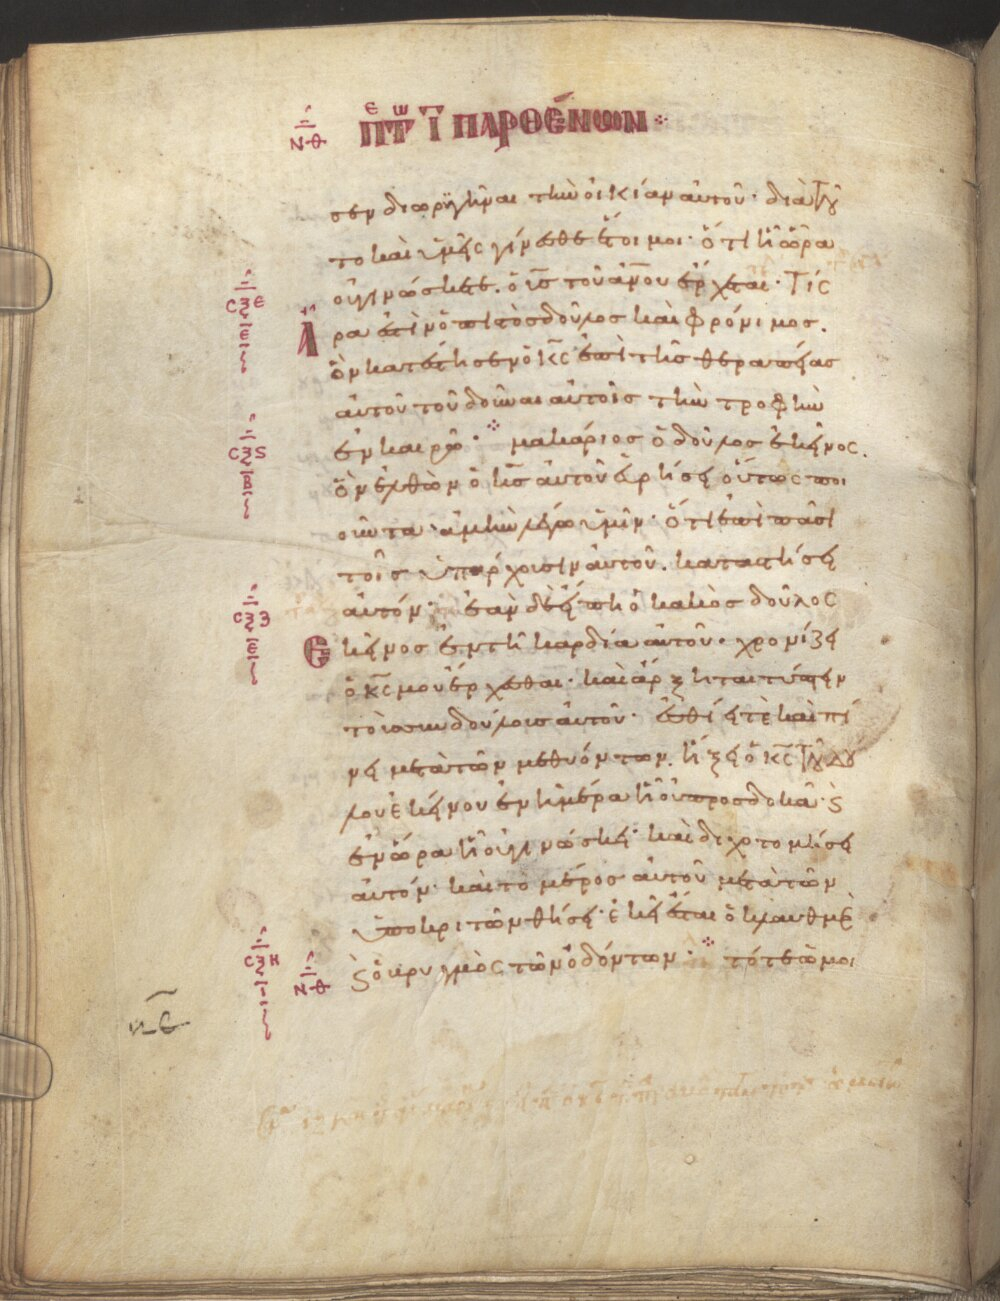 ΝΘ ΠΕΡ ΤΩΝ Ι ΠΑΡΘΕΝΩΝ
σεν διορυγῆναι τὴν οἰκίαν αὐτοῦ· διὰ τοῦ
το καὶ ὑμεῖς γίνεσθε ἕτοιμοι· ὅτι ᾗ ὥρᾳ
οὐ γινώσκετε. ὁ υἱσ τοῦ ἀνου ἔρχεται· Τίς
σξε
ε
Ἄρα ἐστὶν ὁ πιστὸσ δοῦλοσ καὶ φρόνιμοσ.
ὃν κατέστησεν ὁ κς ἐπὶ τῆσ θεραπείασ
αὐτοῦ τοῦ δοῦναι αὐτοῖσ τὴν τροφὴν
ἐν καιρῷ· μακάριοσ ὁ δοῦλοσ ἐκεῖνοσ.
σξς
β
ὃν ἐλθὼν ὁ κσ αὐτοῦ εὑρήσει οὕτωσ ποι
οῦντα· ἀμὴν λέγω ὑμῖν· ὅτι ἐπὶ πᾶσι
τοῖσ ὑπάρχουσιν αὐτοῦ. καταστήσει
αὐτόν· ἐὰν δὲ εἴπῃ ὁ κακὸσ δοῦλοσ
σξζ
ε
Ἐκεῖνοσ ἐν τῇ καρδίᾳ αὐτοῦ· χρονίζει
ὁ κς μου ἔρχεσθαι· καὶ ἄρξηται τύπτειν
τοὺσ συνδούλουσ αὐτοῦ· ἐσθίει τὲ καὶ πί
νει μετὰ τῶν μεθυόντων. ἥξει ὁ κς τοῦ δού
λου ἐκείνου ἐν ἡμέρᾳ ᾗ οὐ προσδοκᾷ· ϗ
ἐν ὥρᾳ ᾗ οὐ γινώσκει· καὶ διχοτομήσει
αὐτόν· καὶ τὸ μέροσ αὐτοῦ μετὰ τῶν
ὑποκριτῶν θήσει· ἐκεῖ ἔσται ὁ κλαυθμὸς
σξη
ι
ΝΘ
ϗ ὁ βρυγμὸσ τῶν ὀδόντων· τότε ὁμοι